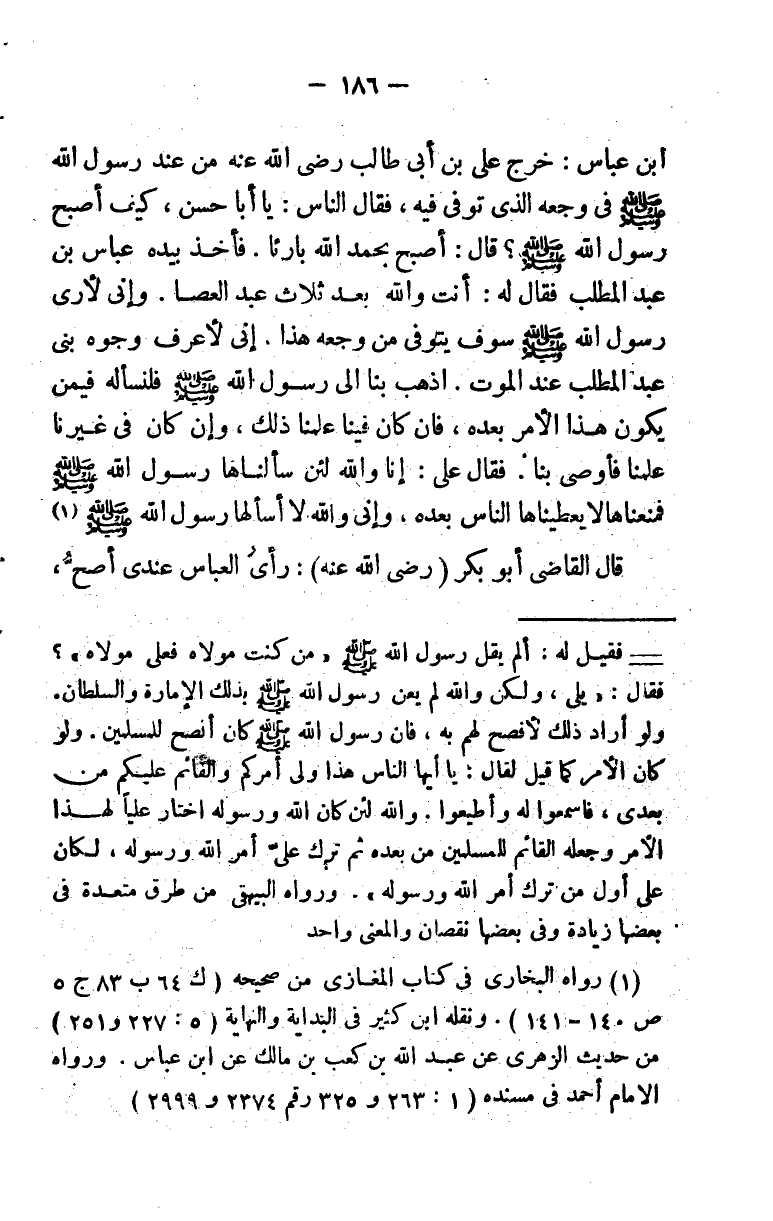 — ١٨٦ —
ابن عباس : خرج على بن أبى طالب رضى الله عنه من عند رسول الله
ﷺ فى وجعه الذى توفى فيه ، فقال الناس : يا أبا حسن ، كيف أصبح
رسول الله ﷺ ؟ قال : أصبح بحمد الله بارئا . فأخـذ بيده عباس بن
عبد المطلب فقال له : أنت والله بعـد ثلاث عبد العصـا . وإنى لأرى
رسول الله ﷺ سوف يتوفى من وجعه هذا . إنى لأعرف وجوه بنى
عبد المطلب عند الموت . اذهب بنا الى رسـول الله ﷺ فلنسأله فيمن
يكون هـذا الأمر بعده ، فان كان فينا علمنا ذلك ، وإن كان فى غيرنا
علمنا فأوصى بنا . فقال على : إنا والله لئن سألنـاها رسـول الله ﷺ
فمنعناها لا يعطيناها الناس بعده ، وإنى والله لا أسألها رسول الله ﷺ (١)
قال القاضى أبو بكر ( رضى الله عنه ) : رأىُ العباس عندى أصحُّ ،
== فقيـل له : ألم يقل رسول الله ﷺ « من كنت مولاه فعلى مولاه » ؟
فقال : « بلى ، ولكن والله لم يعن رسول الله ﷺ بذلك الإمارة والسلطان.
ولو أراد ذلك لأفصح لهم به ، فان رسول الله ﷺ كان أنصح للمسلمين . ولو
كان الأمر كما قيل لقال : يا أيها الناس هذا ولى أمركم والقائم عليكم من
بعدى ، فاسمعوا له وأطيعوا . والله لئن كان الله ورسوله اختار علياً لهـذا
الأمر وجعله القائم للمسلمين من بعده ثم ترك علىّ أمر الله ورسوله ، لـكان
على أول من ترك أمر الله ورسوله » . ورواه البيهقى من طرق متعـددة فى
بعضها زيادة وفى بعضها نقصان والمعنى واحد
(١) رواه البخارى فى كتاب المغـازى من صحيحه ( ك ٦٤ ب ٨٣ ج ٥
ص ١٤٠ – ١٤١ ) . ونقله ابن كثير فى البداية والنهاية ( ٥ : ٢٢٧ و ٢٥١ )
من حديث الزهرى عن عبـد الله بن كعب بن مالك عن ابن عباس . ورواه
الامام أحمد فى مسنده ( ١ : ٢٦٣ و ٣٢٥ رقم ٢٣٧٤ و ٢٩٩٩ )